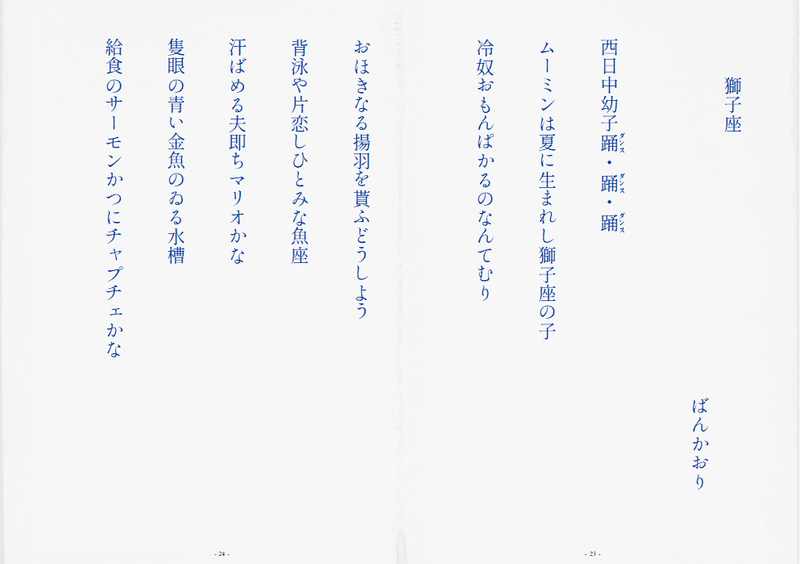 獅子座
ばんかおり
西日中幼子踊・踊・踊
ダンス ダンス ダンス
ムーミンは夏に生まれし獅子座の子
冷奴おもんぱかるのなんてむり
- 23 -
おほきなる揚羽を貰ふどうしよう
背泳や片恋しひとみな魚座
汗ばめる夫即ちマリオかな
隻眼の青い金魚のゐる水槽
給食のサーモンかつにチャプチェかな
- 24 -